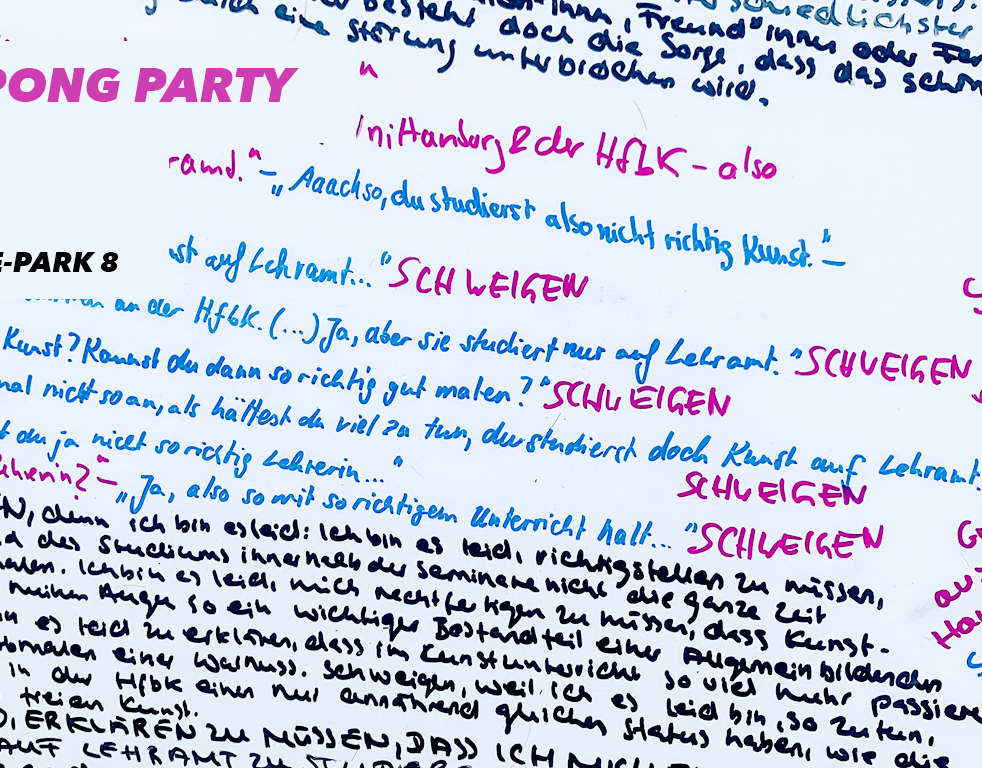 besteht doch die Sorge, dass das schön
durch eine Störung unterbrochen wird.
PONG PARTY
"
in Hamburg & der HfbK – also
ramt." – "Aaachso, du studierst also nicht richtig Kunst." –
E-PARK 8
ist auf Lehramt..." SCHWEIGEN
an der HfbK. (...) Ja, aber sie studiert nur auf Lehramt." SCHWEIGEN
Kunst? Kannst du dann so richtig gut malen?" SCHWEIGEN
mal nicht so an, als hättest du viel zu tun, du studierst doch Kunst auf Lehramt.
du ja nicht so richtig Lehrerin..."
SCHWEIGEN
"Ja, also so mit so richtigem Unterricht halt..." SCHWEIGEN
EN, denn ich bin es leid: Ich bin es leid, richtigstellen zu müssen,
des Studiums innerhalb der Seminare nicht die ganze Zeit
malen. Ich bin es leid, mich rechtfertigen zu müssen, dass Kunst-
meinen Augen so ein wichtiger Bestandteil einer Allgemeinbildenden
es leid zu erklären, dass im Kunstunterricht so viel mehr passiert
einer Walnuss. Schweigen, weil ich es leid bin, so zu tun,
in der HfbK einen nur annährend gleichen Status haben, wie die
freien Kunst.
ERKLÄREN ZU MÜSSEN, DASS ICH
AUF LEHRAMT ZU